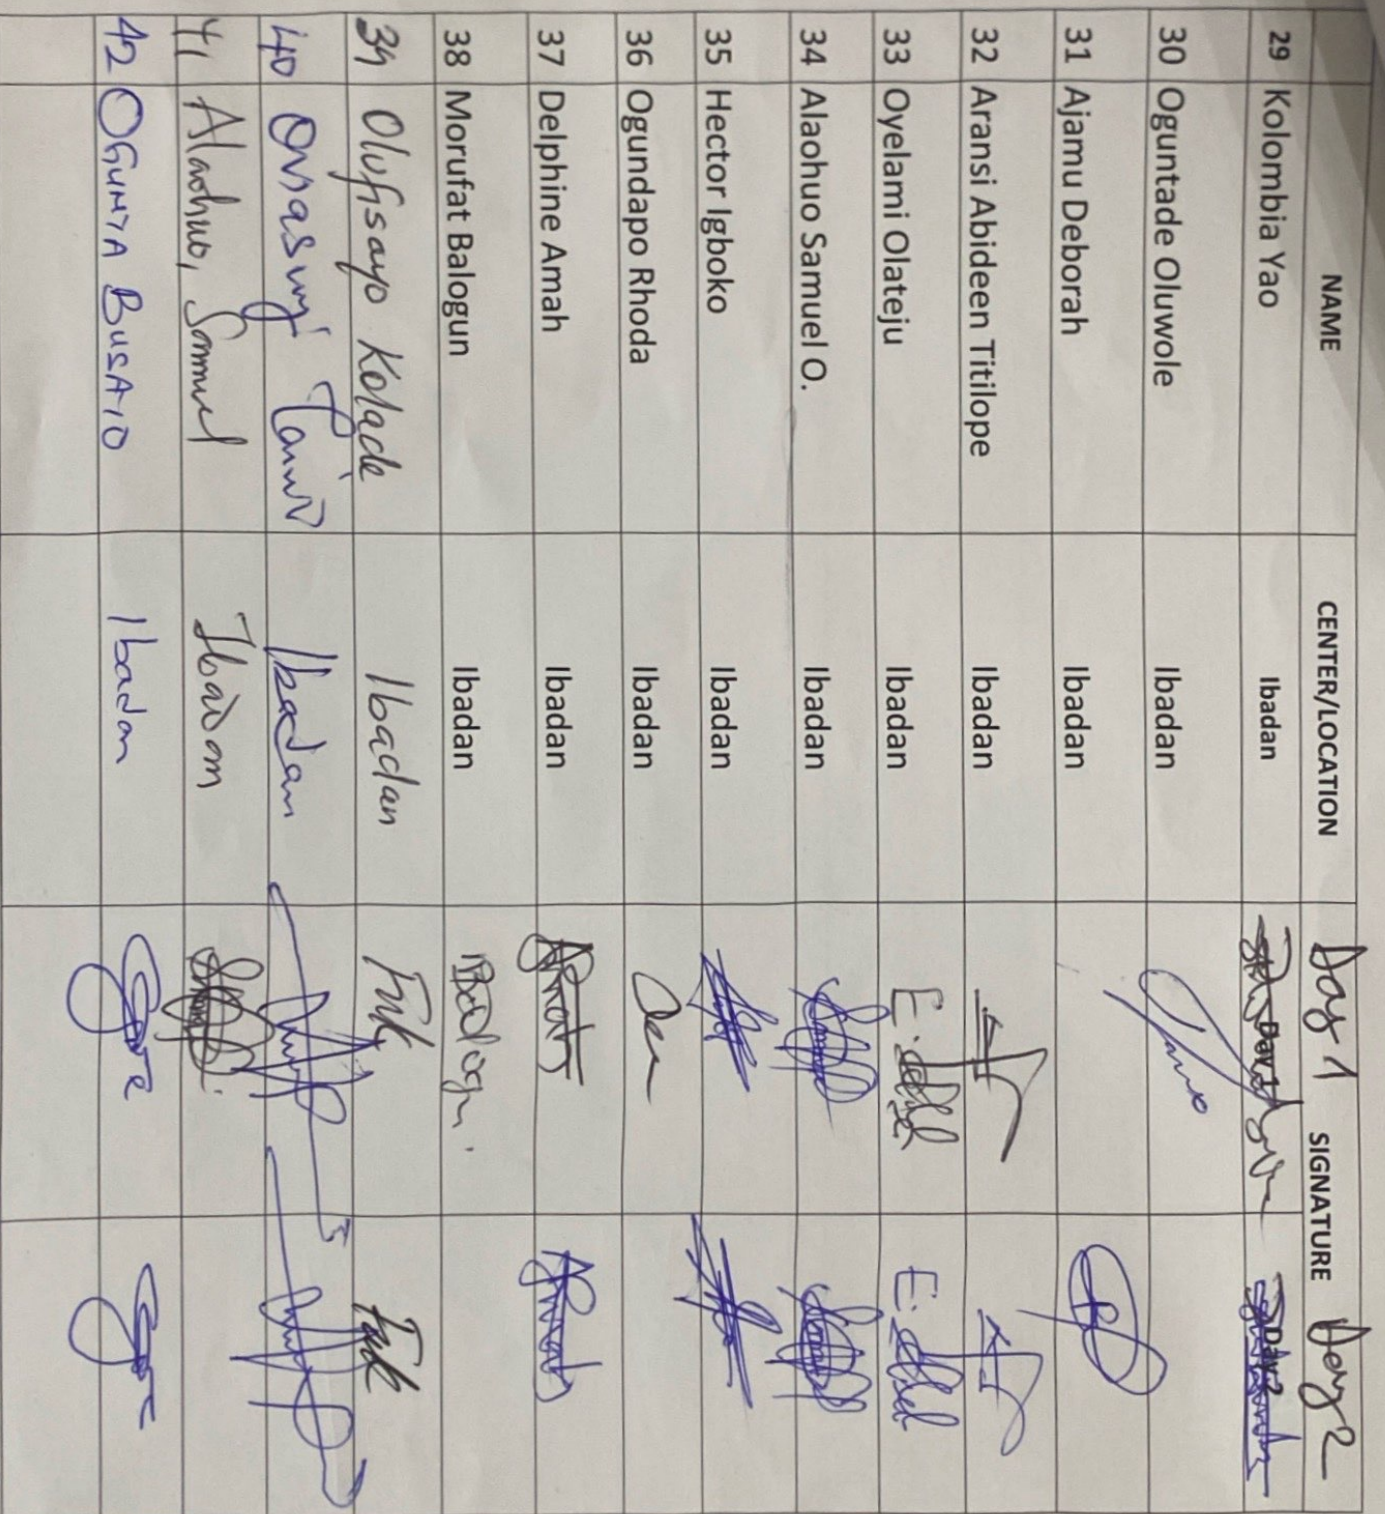 NAME CENTER/LOCATION Day 1 SIGNATURE Day 2
29 Kolombia Yao Ibadan Day 1 Day 2
30 Oguntade Oluwole Ibadan
31 Ajamu Deborah Ibadan
32 Aransi Abideen Titilope Ibadan
33 Oyelami Olateju Ibadan
34 Alaohuo Samuel O. Ibadan
35 Hector Igboko Ibadan
36 Ogundapo Rhoda Ibadan
37 Delphine Amah Ibadan
38 Morufat Balogun Ibadan
39 Olufisayo Kolade Ibadan
40 Ibadan
41 Alaohuo, Samuel Ibadan
42 OGUNYA BUSAYO Ibadan